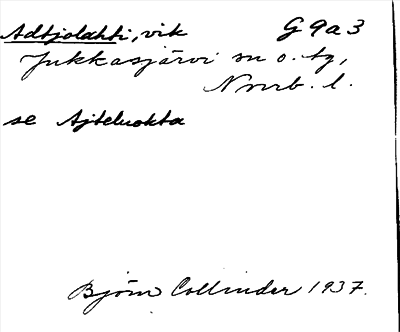 Adtjolahti, vik G9a3
Jukkasjärvi sn o. tg,
Nrrb. l.
se Ajteluokta
Björn Collinder 1937.